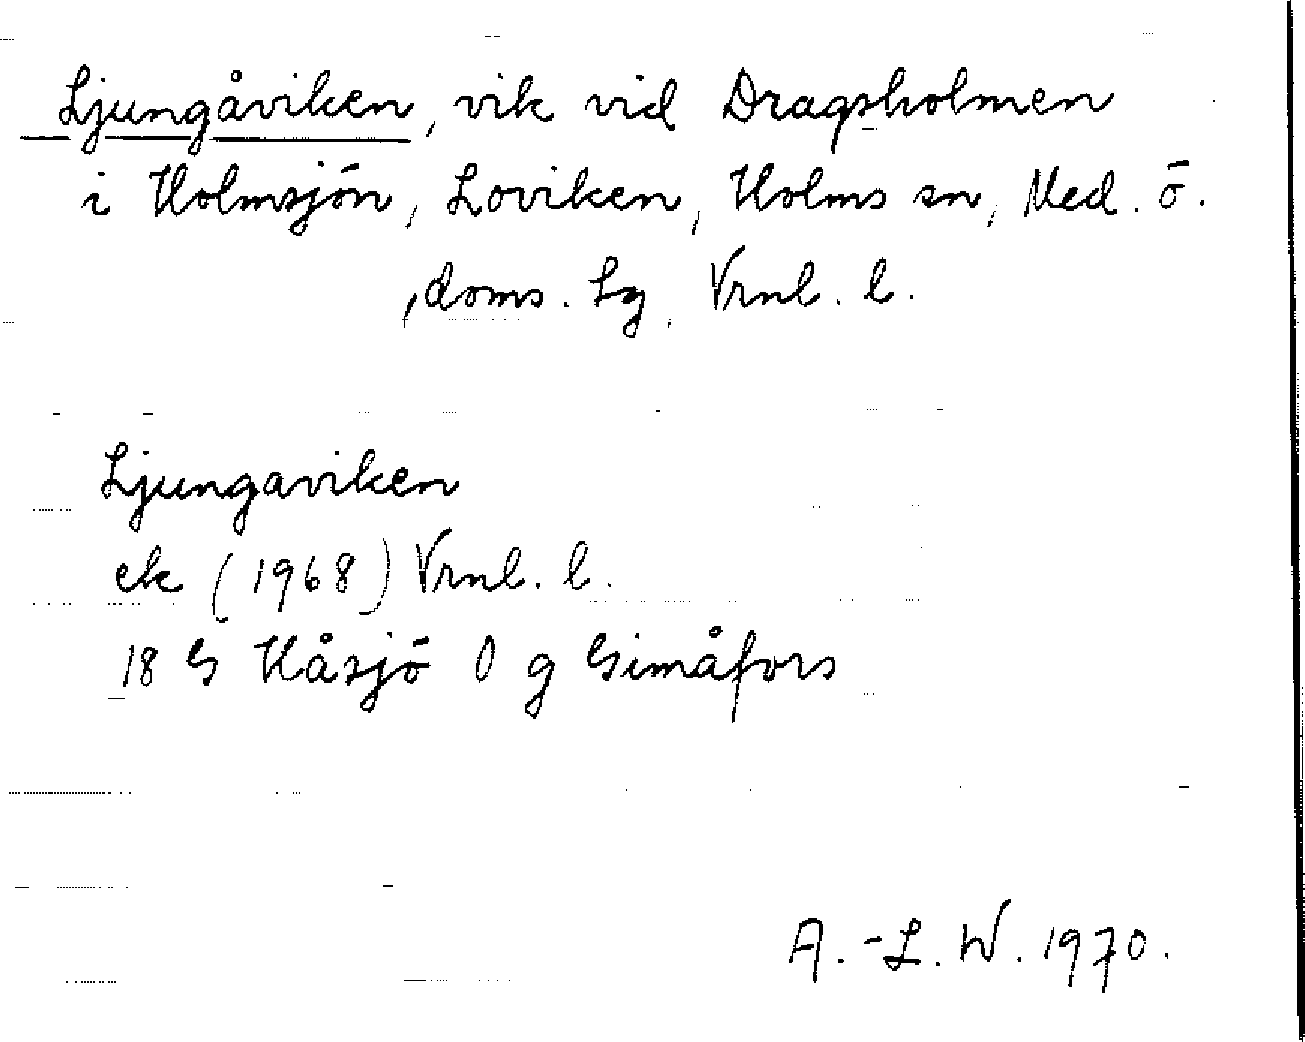 Ljungåviken, vik vid Dragsholmen
i Holmsjön, Loviken, Holms sn, Med. ö.
, doms. Lg, Vrnl. l.
Ljungaviken
ek (1968) Vrnl. l.
18 G Håsjö O g Gimåfors
A.-L. W. 1970.